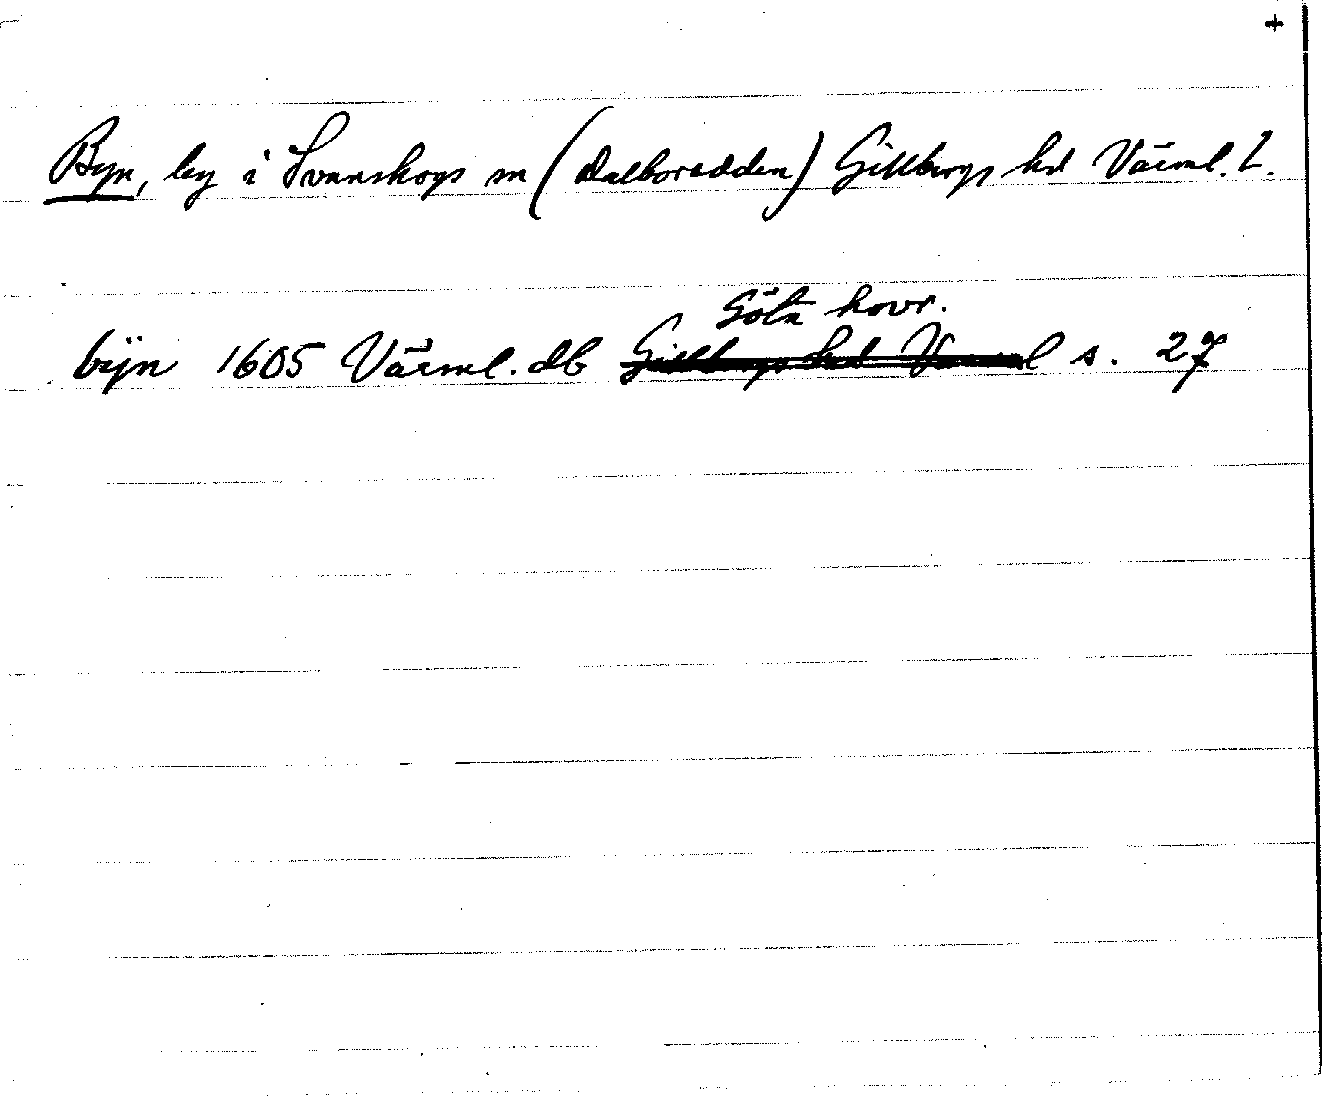 +
Byn, by i Svanskogs sn (Dalboredden) Gillbergs hd Värml. l.
Göta hovr.
bÿn 1605 Värml. db Gillbergs hd Värml s. 27